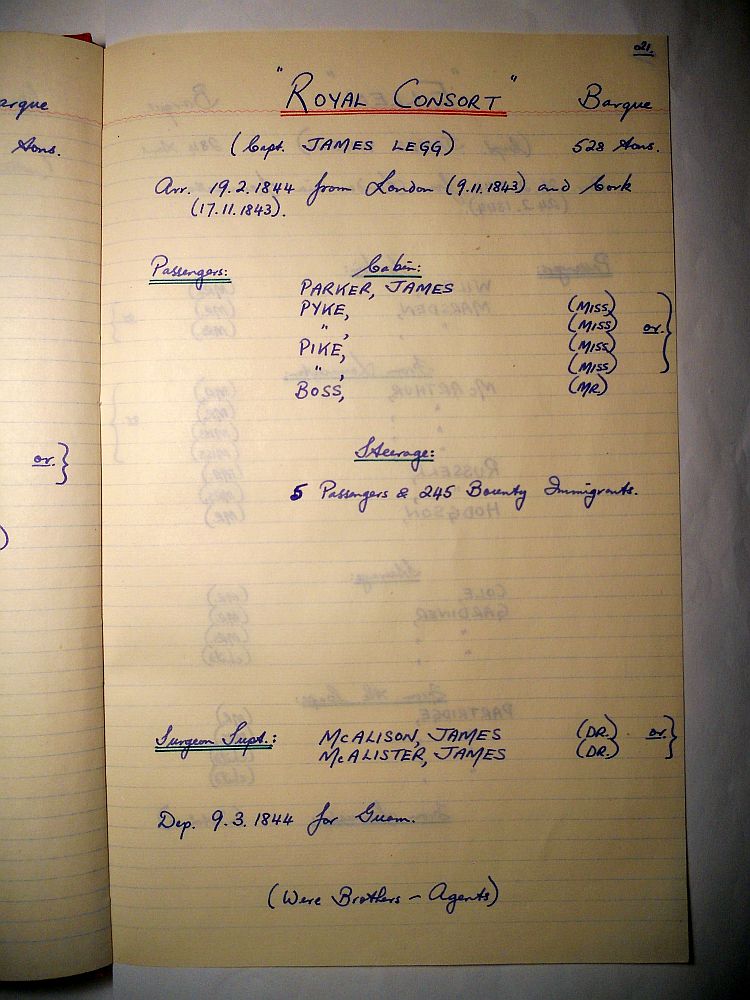 021.
"ROYAL CONSORT" Barque
(Capt. JAMES LEGG) 528 tons.
Arr. 19.2.1844 from London (9.11.1843) and Cork
(17.11.1843).
Passengers: Cabin:
PARKER, JAMES
PYKE, (MISS)
" , (MISS) or.
PIKE, (MISS)
" , (MISS)
BOSS, (MR.)
Steerage:
5 Passengers & 245 Bounty Immigrants.
Surgeon Supt.: McALISON, JAMES (DR.) or.
McALISTER, JAMES (DR.)
Dep. 9.3.1844 for Guam.
(Were Brothers - Agents)
arque
tons.
or.